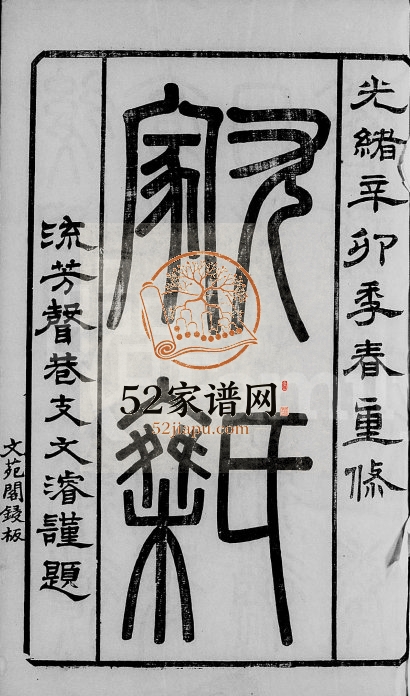 光緒辛卯季春重修
尤氏
家乘
流芳聲巷支文濬謹題
文苑閣鋟板
52家谱网
52jiapu.com